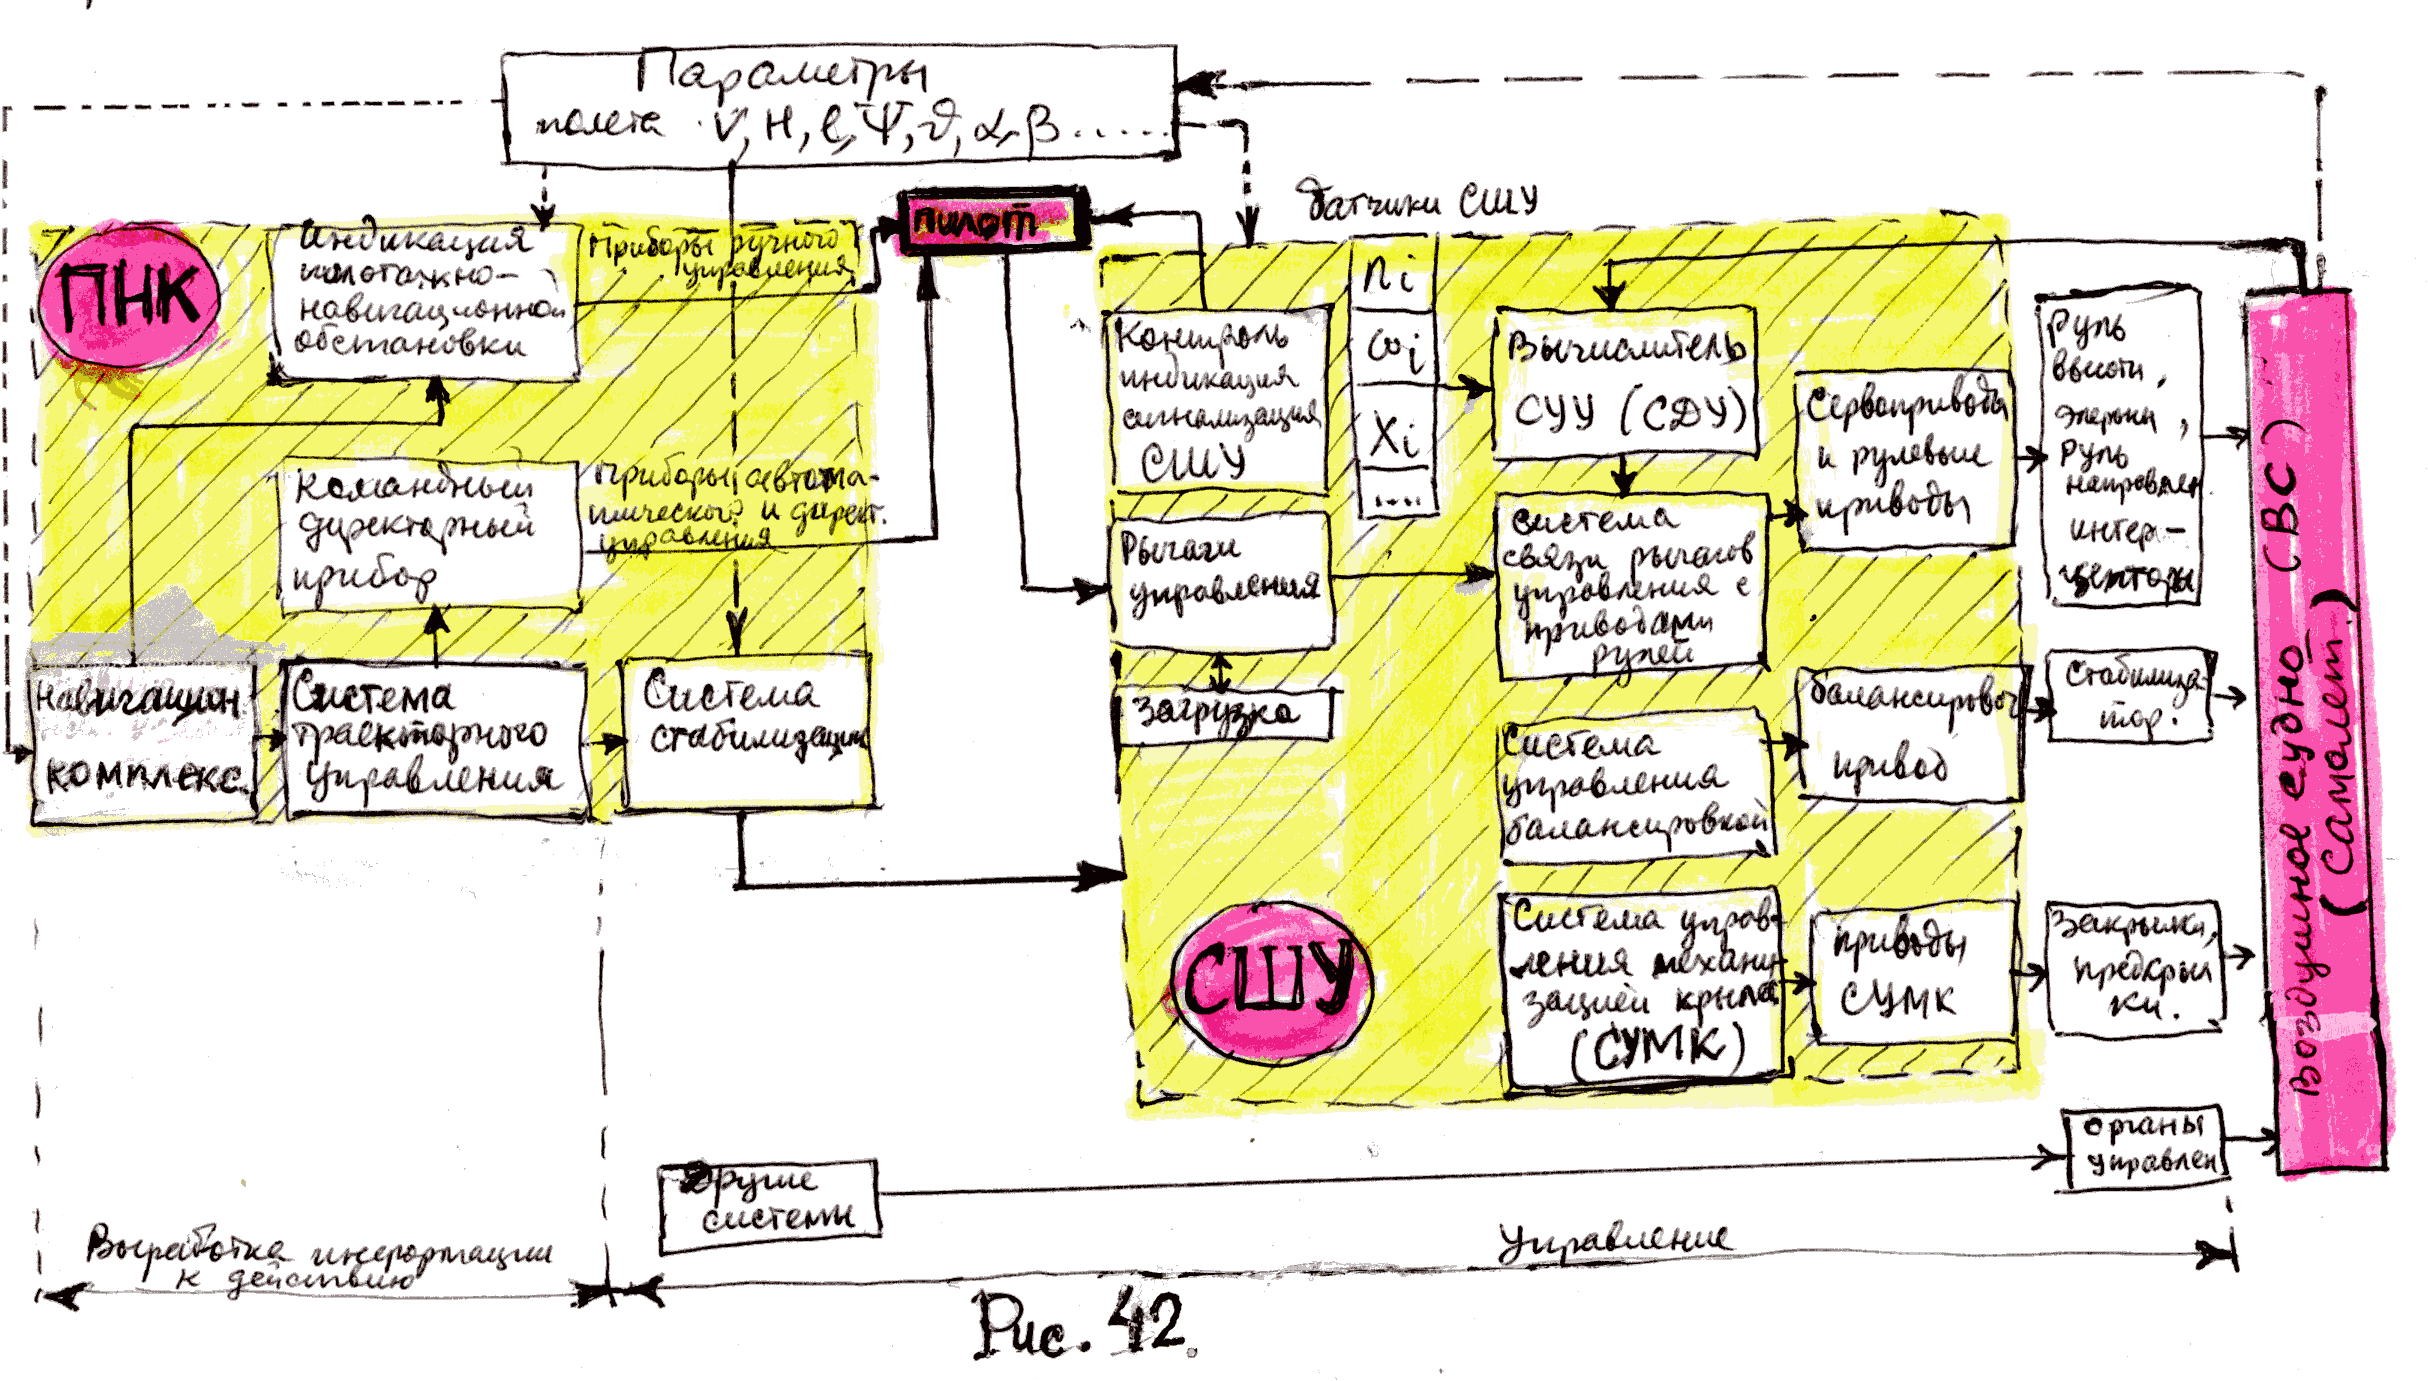 Параметры
полета V, H, ℓ, Ψ, ϑ, α, β......
пилот
Датчики СШУ
ПНК
Индикация
пилотажно-
навигационной
обстановки
Приборы ручного
управления
Командный
директорный
прибор
Приборы автома-
тического и директ.
управления
Навигацион.
комплекс.
Система
траекторного
управления
Система
стабилизации
Контроль
индикация
сигнализация
СШУ
ni
ωi
Xi
....
Вычислитель
СУУ (СДУ)
Сервоприводы
и рулевые
приводы
Руль
высоты,
элероны,
Руль
направлен.
интер-
цепторы
Рычаги
управления
Загрузка
Система
связи рычагов
управления с
приводами
рулей
Система
управления
балансировкой
балансировоч
привод
Стабилиза-
тор.
СШУ
Система управ-
ления механи-
зацией крыла
(СУМК)
приводы
СУМК
Закрылки,
предкрыл
ки.
Воздушное судно (ВС)
(Самолет)
Другие
системы
органы
управлен
Выработка информации
к действию
Управление
Рис. 42.